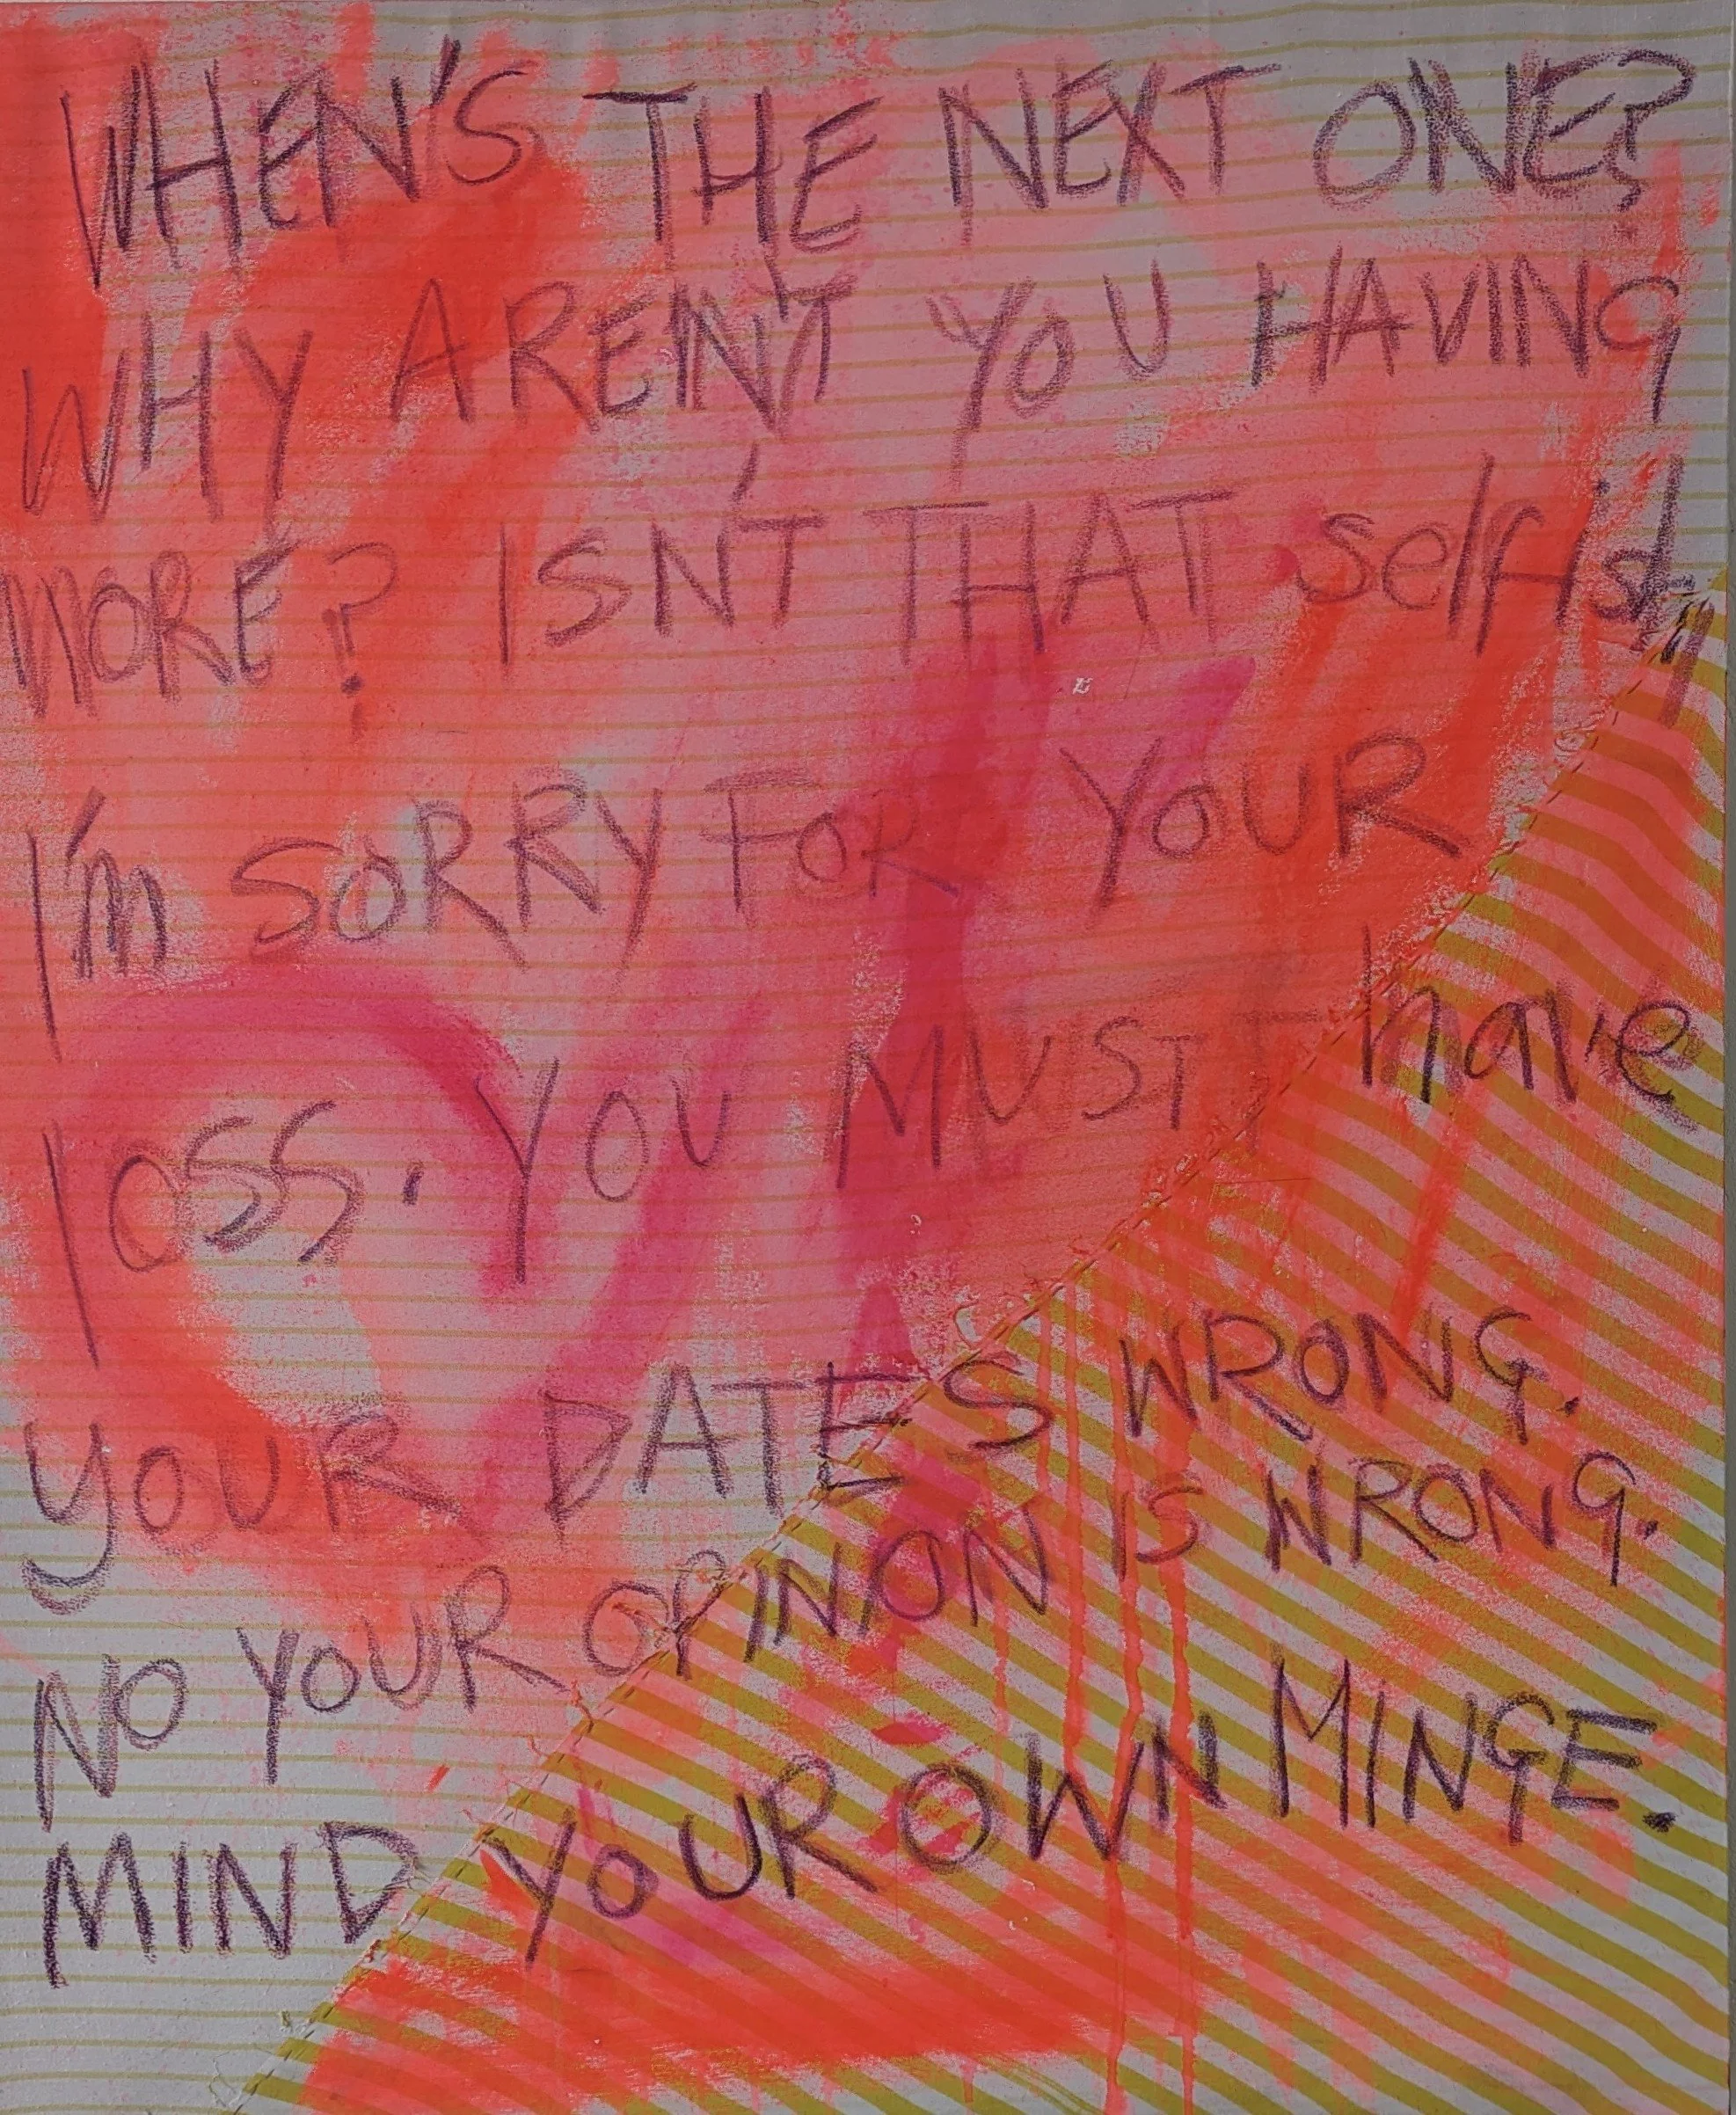 WHEN'S THE NEXT ONE?
WHY AREN'T YOU HAVING
MORE? ISN'T THAT selfish
I'm SORRY FOR YOUR
loss. YOU MUST have
YOUR DATES WRONG.
NO YOUR OPINION IS WRONG.
MIND YOUR OWN MINGE.